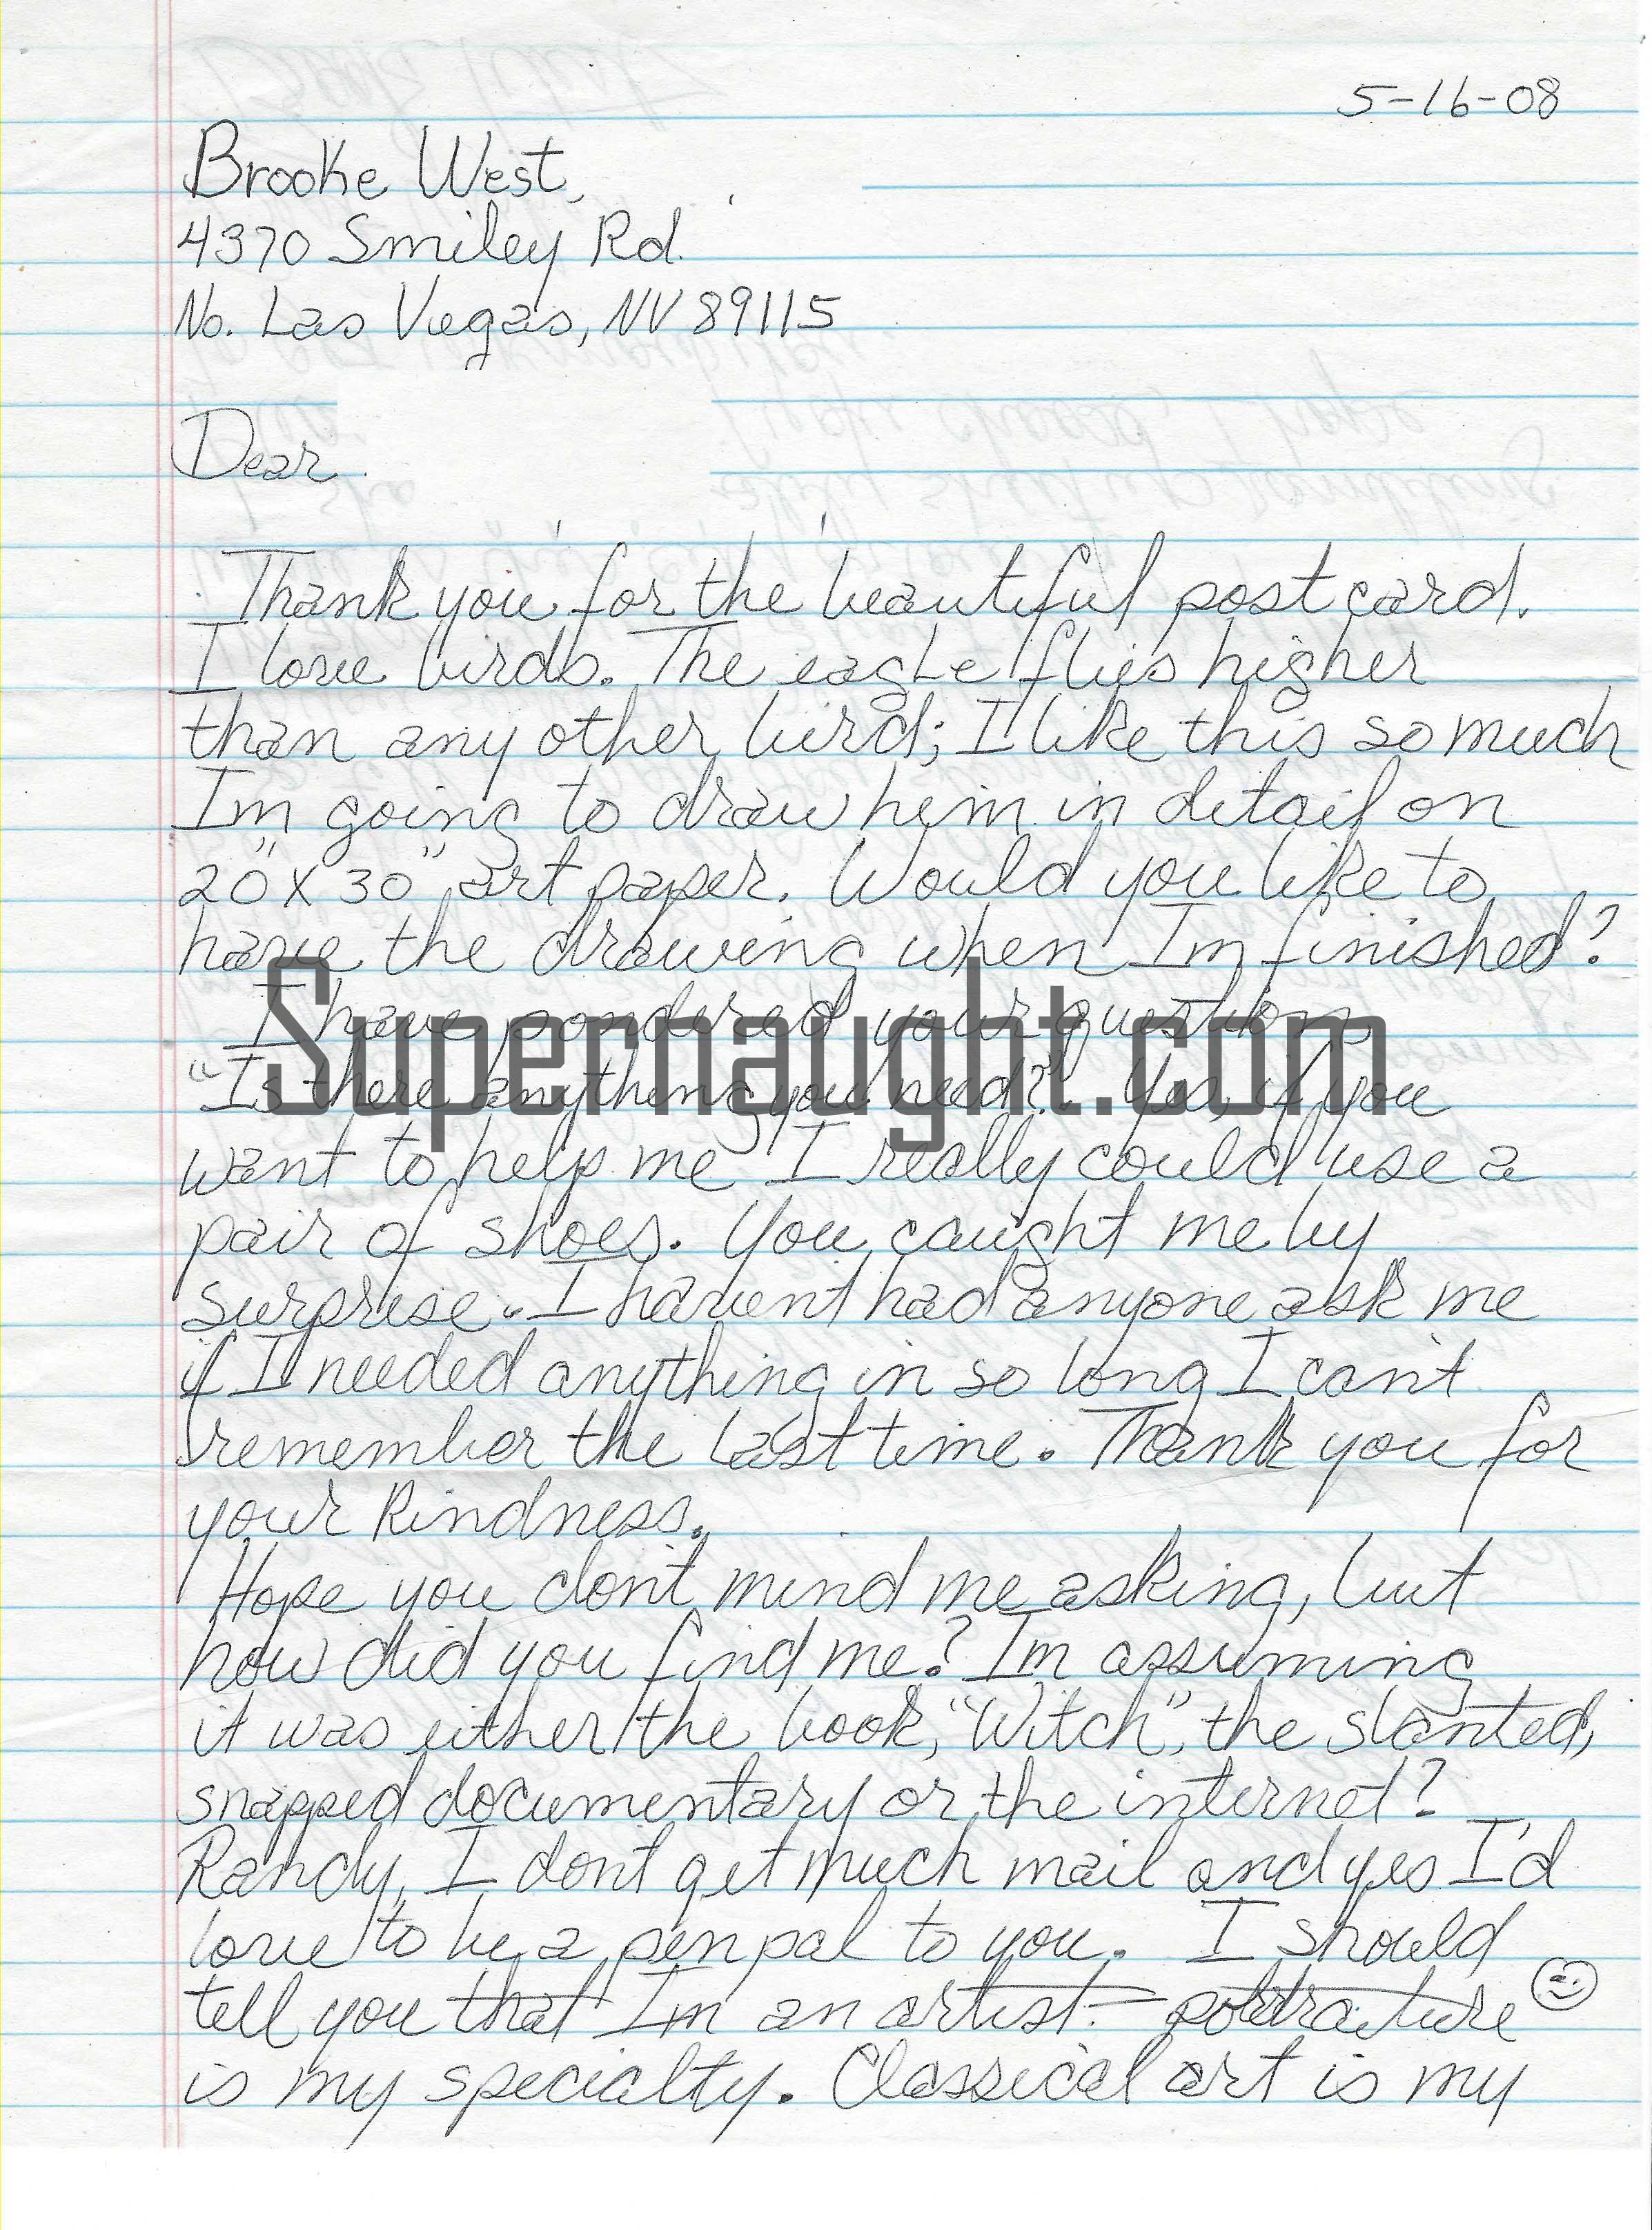 5-16-08
Brooke West,
4370 Smiley Rd.
No. Las Vegas, NV 89115
Dear
Thank you for the beautiful post card.
I love birds. The eagle flies higher
than any other bird; I like this so much
Im going to draw him in detail on
20" x 30" art paper. Would you like to
have the drawing when Im finished?
I have pondered your question
"Is there anything you need?". Yes, if you
want to help me I really could use a
pair of shoes. You caught me by
surprise. I havent had anyone ask me
if I needed anything in so long I can't
remember the last time. Thank you for
your kindness.
Hope you don't mind me asking, but
how did you find me? Im assuming
it was either the book, "Witch", the slanted,
snapped documentary or the internet?
Randy, I don't get much mail and yes I'd
love to be a pen pal to you. I should
tell you that Im an artist - portraiture
is my specialty. Classical art is my
Supernaught.com